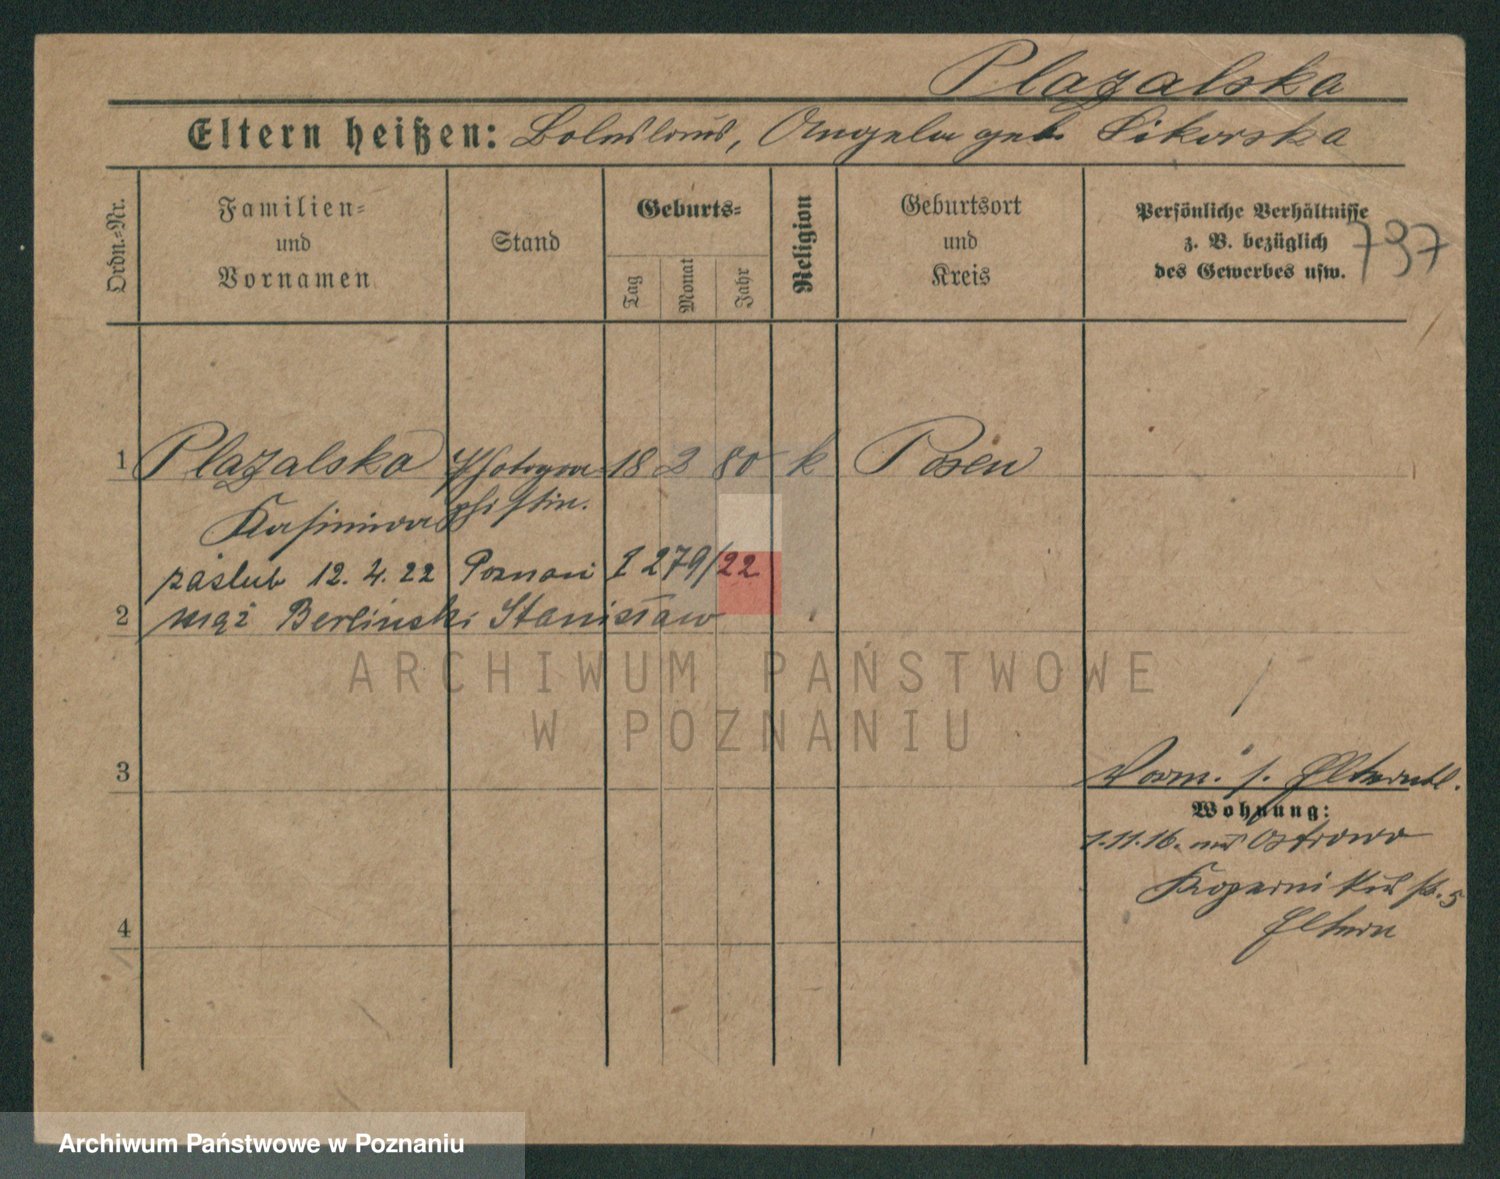 Plazalska
Eltern heißen: Boleslaus, Angela geb. Sikorska
Ordn.=Nr.
Familien=
und
Vornamen
Stand
Geburts=
Tag
Monat
Jahr
Religion
Geburtsort
und
Kreis
Persönliche Verhältnisse
z. B. bezüglich
des Gewerbes usw.
737
1 Plazalska Photogra= 18 2 80 k Posen
Kasimira phistin.
záslub 12. 4. 22 Poznań I 279/22
2 mąż Berliński Stanisław
ARCHIWUM PAŃSTWOWE
W POZNANIU
3
Vorm. s. Elternbl.
Wohnung:
1.11.16. Ostrowo
Kopernikus str. 5
Eltern
4
Archiwum Państwowe w Poznaniu